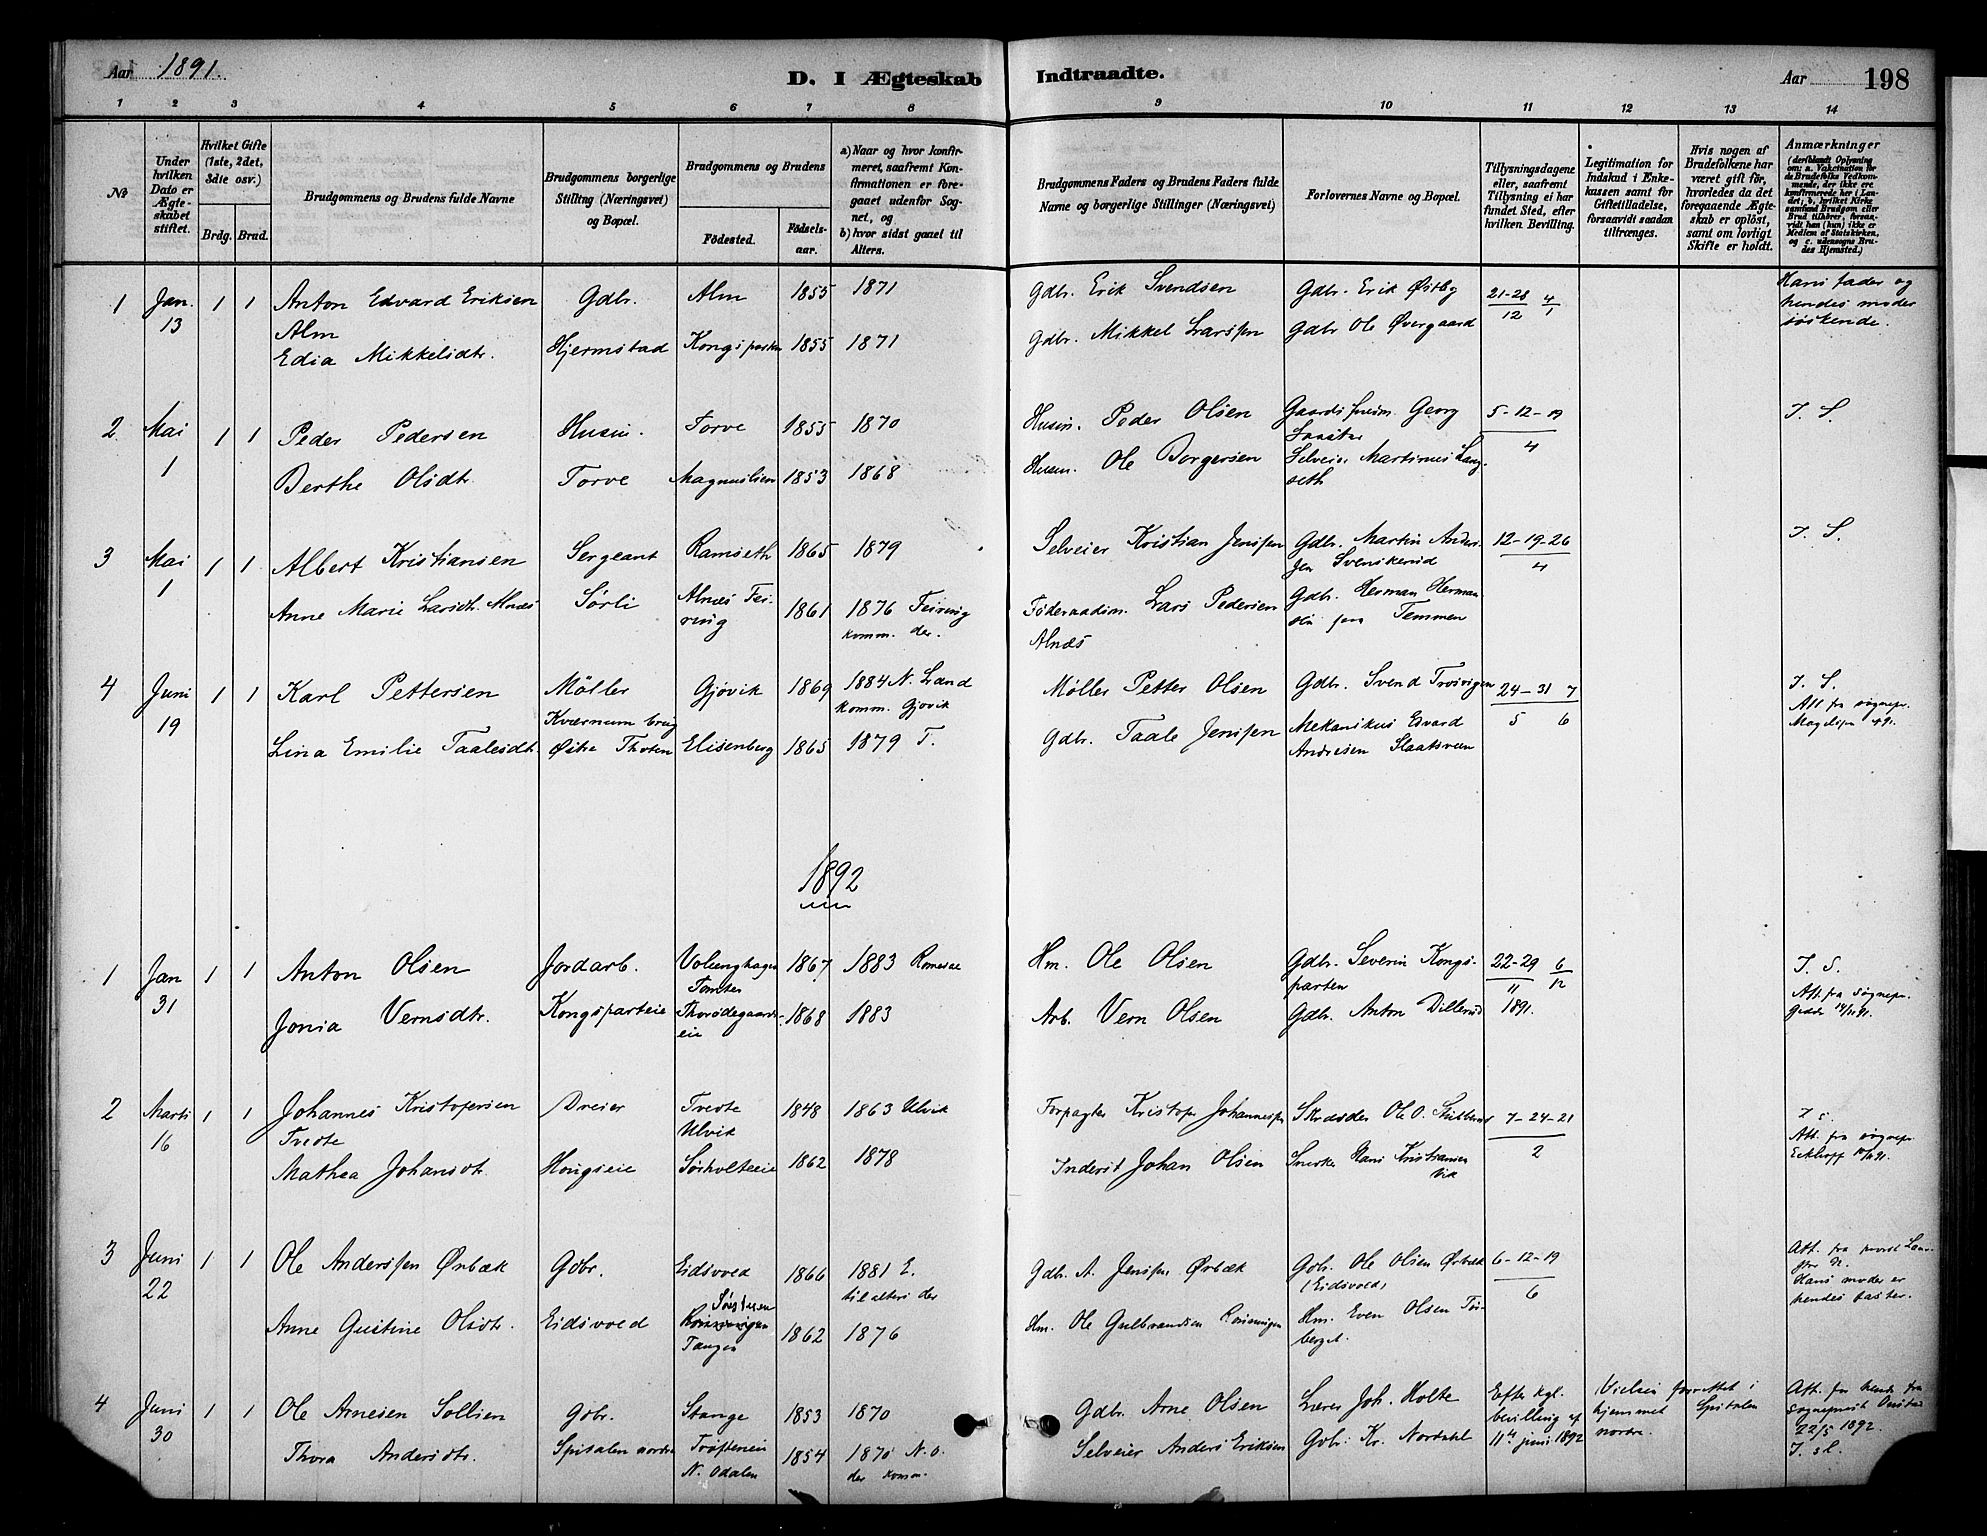 Aar 1891.
D. I Ægteskab Indtraadte.
Aar 198
1 2 3 4 5 6 7 8 9 10 11 12 13 14
№
Under hvilken Dato er Ægteskabet stiftet.
Hvilket Gifte (1ste, 2det, 3die osv.)
Brdg. Brud.
Brudgommens og Brudens fulde Navne
Brudgommens borgerlige Stilling (Næringsvei) og Bopæl.
Brudgommens og Brudens
Fødested. Fødselsaar.
a) Naar og hvor konfirmeret, saafremt Konfirmationen er foregaaet udenfor Sognet, og b) hvor sidst gaaet til Alters.
Brudgommens Faders og Brudens Faders fulde Navne og borgerlige Stillinger (Næringsvei)
Forlovernes Navne og Bopæl.
Tillysningsdagene eller, saafremt Tillysning ei har fundet Sted, efter hvilken Bevilling.
Legitimation for Indskud i Enkekassen samt for Giftetilladelse, forsaavidt saadan tiltrænges.
Hvis nogen af Brudefolkene har været gift før, hvorledes da det foregaaende Ægteskab er opløst, samt om lovligt Skifte er holdt.
Anmærkninger (deriblandt Oplysning om: a. Vakcination for de Brudefolks Vedkommende, der ikke ere konfirmerede her i Landet; b, hvilket Kirkesamfund Brudgom eller Brud tilhører, forsaavidt han (hun) ikke er Medlem af Statskirken, og c. udensogns Brudes Hjemsted.)
1 Jan. 13 1 1 Anton Edvard Eriksen Alm Gdbr. Alm 1855 1871 Gdbr. Erik Svendsen Gdbr. Erik Østby 21-28/12 4/1 Hans fader og hendes moder søskende.
Edia Mikkelsdtr. Hjermstad Kongsparten 1855 1871 Gdbr. Mikkel Larssen Gdbr Ole Øvergaard
2 Mai 1 1 1 Peder Pedersen Husm. Torve 1855 1870 Husm. Peder Olsen Gaards Georg 5-12-19/4 J. S.
Berthe Olsdtr. Torve Magnuslien 1853 1868 Husm. Ole Borgersen Selveier Martinus Langseth
3 Mai 1 1 1 Albert Kristiansen Sergeant Ramseth 1865 1879 Selveier Kristian Jenssen Gdbr. Martin Anderssen Svenskerud 12-19-26/4 J. S.
Anne Marie Larsdtr. Alnæs Sørli Alnæs Feiring 1861 1876 Feiring komm. der. Føderaadsm. Lars Pedersen Alnæs Gdbr. Herman Hermansen Temmen
4 Juni 19 1 1 Karl Pettersen Møller Gjøvik 1869 1884 N. Land komm. Gjøvik Møller Petter Olsen Gdbr. Svend Trosvigen 24-31/5 7/6 J. S. Att fra sognepr.
Kværnum brug
Lina Emilie Taalesdtr. Østre Thoten Elisenberg 1865 1879 T. Gdbr. Taale Jenssen Mekanikus Edvard Andresen Slaatsveen
1892
1 Jan 31 1 1 Anton Olsen Jordarb. Volunghagen Tomter 1867 1883 Romedal Hm. Ole Olsen Gdbr. Severin Kongsparten 22-29/11 6/12 1891. J. S. Att. fra sognepr.
Jonia Vernsdtr. Kongsparteie Thorsdegaardseie 1868 1883 Arb. Vern Olsen Gdbr. Anton Dillerud
2 Marts 16 1 1 Johannes Kristofersen Tredte Dreier Tredte Ulvik 1848 1863 Ulvik Forpagter Kristofer Johannessen Skrædder Ole O. 7-24-21/2 J. S. Att. fra sognepr. Eckhoff
Mathea Johansdtr. Hougseie Sørholteie 1862 1878 Inderst Johan Olsen Snerker Hans Kristiansen Vik
3 Juni 22 1 1 Ole Anderssen Ørbæk Gdbr. Eidsvold 1866 1881 E. til alters der Gdbr. A. Jenssen Ørbæk Gdbr. Ole Olsen Ørbæk (Eidsvold) 6-12-19/6 Att. fra provst Hans moder er hendes faster.
Anne Gustine Olsdtr. Eidsvold Tangen 1862 1876 Hm. Ole Gulbrandsen Rønningen Hm. Even Olsen Torberget.
4 Juni 30 1 1 Ole Arnesen Sollien Gdbr. Stange 1853 1870 Gdbr. Arne Olsen Lærer Joh. Holte Efter kgl. bevilling af 11te juni 1892 Vielsen forrettet i hjemmet Spitalen nordre. Att. for hende fra sogneprest Onstad 22/5 1892. J. S.
Thora Andersdtr. Spitalen nordre Trøfteneie N. Odalen 1854 1870 N. O. der komm. Selveier Anders Eriksen Gdbr. Kr. Nordahl